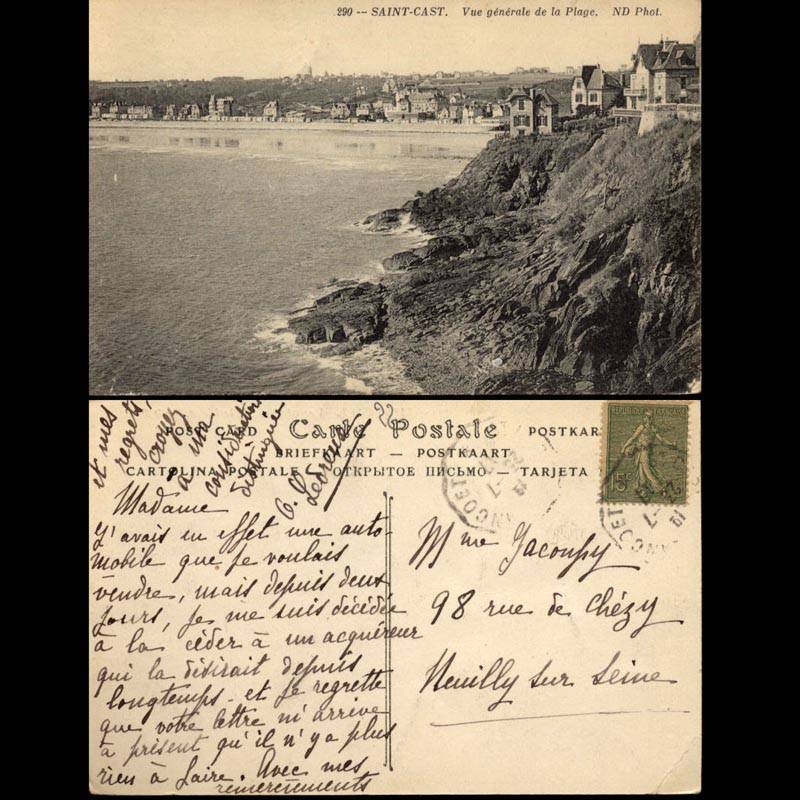 290 -- SAINT-CAST. Vue générale de la Plage. ND Phot.
POST CARD Carte Postale POSTKAR
BRIEFKAART — POSTKAART
CARTOLINA POSTALE — ОТКРЫТОЕ ПИСЬМО — TARJETA
REPUBLIQUE FRANÇAISE
15c
Madame
J'avais en effet une auto-
mobile que je voulais
vendre, mais depuis deux
jours, je me suis décidée
à la céder à un acquéreur
qui la désirait depuis
longtemps - et je regrette
que votre lettre m'arrive
à présent qu'il n'y a plus
rien à faire. Avec mes
remerciements
et mes
regrets,
croyez
à ma
considération
distinguée
Mme Jacoupy
98 rue de Chézy
Neuilly sur Seine